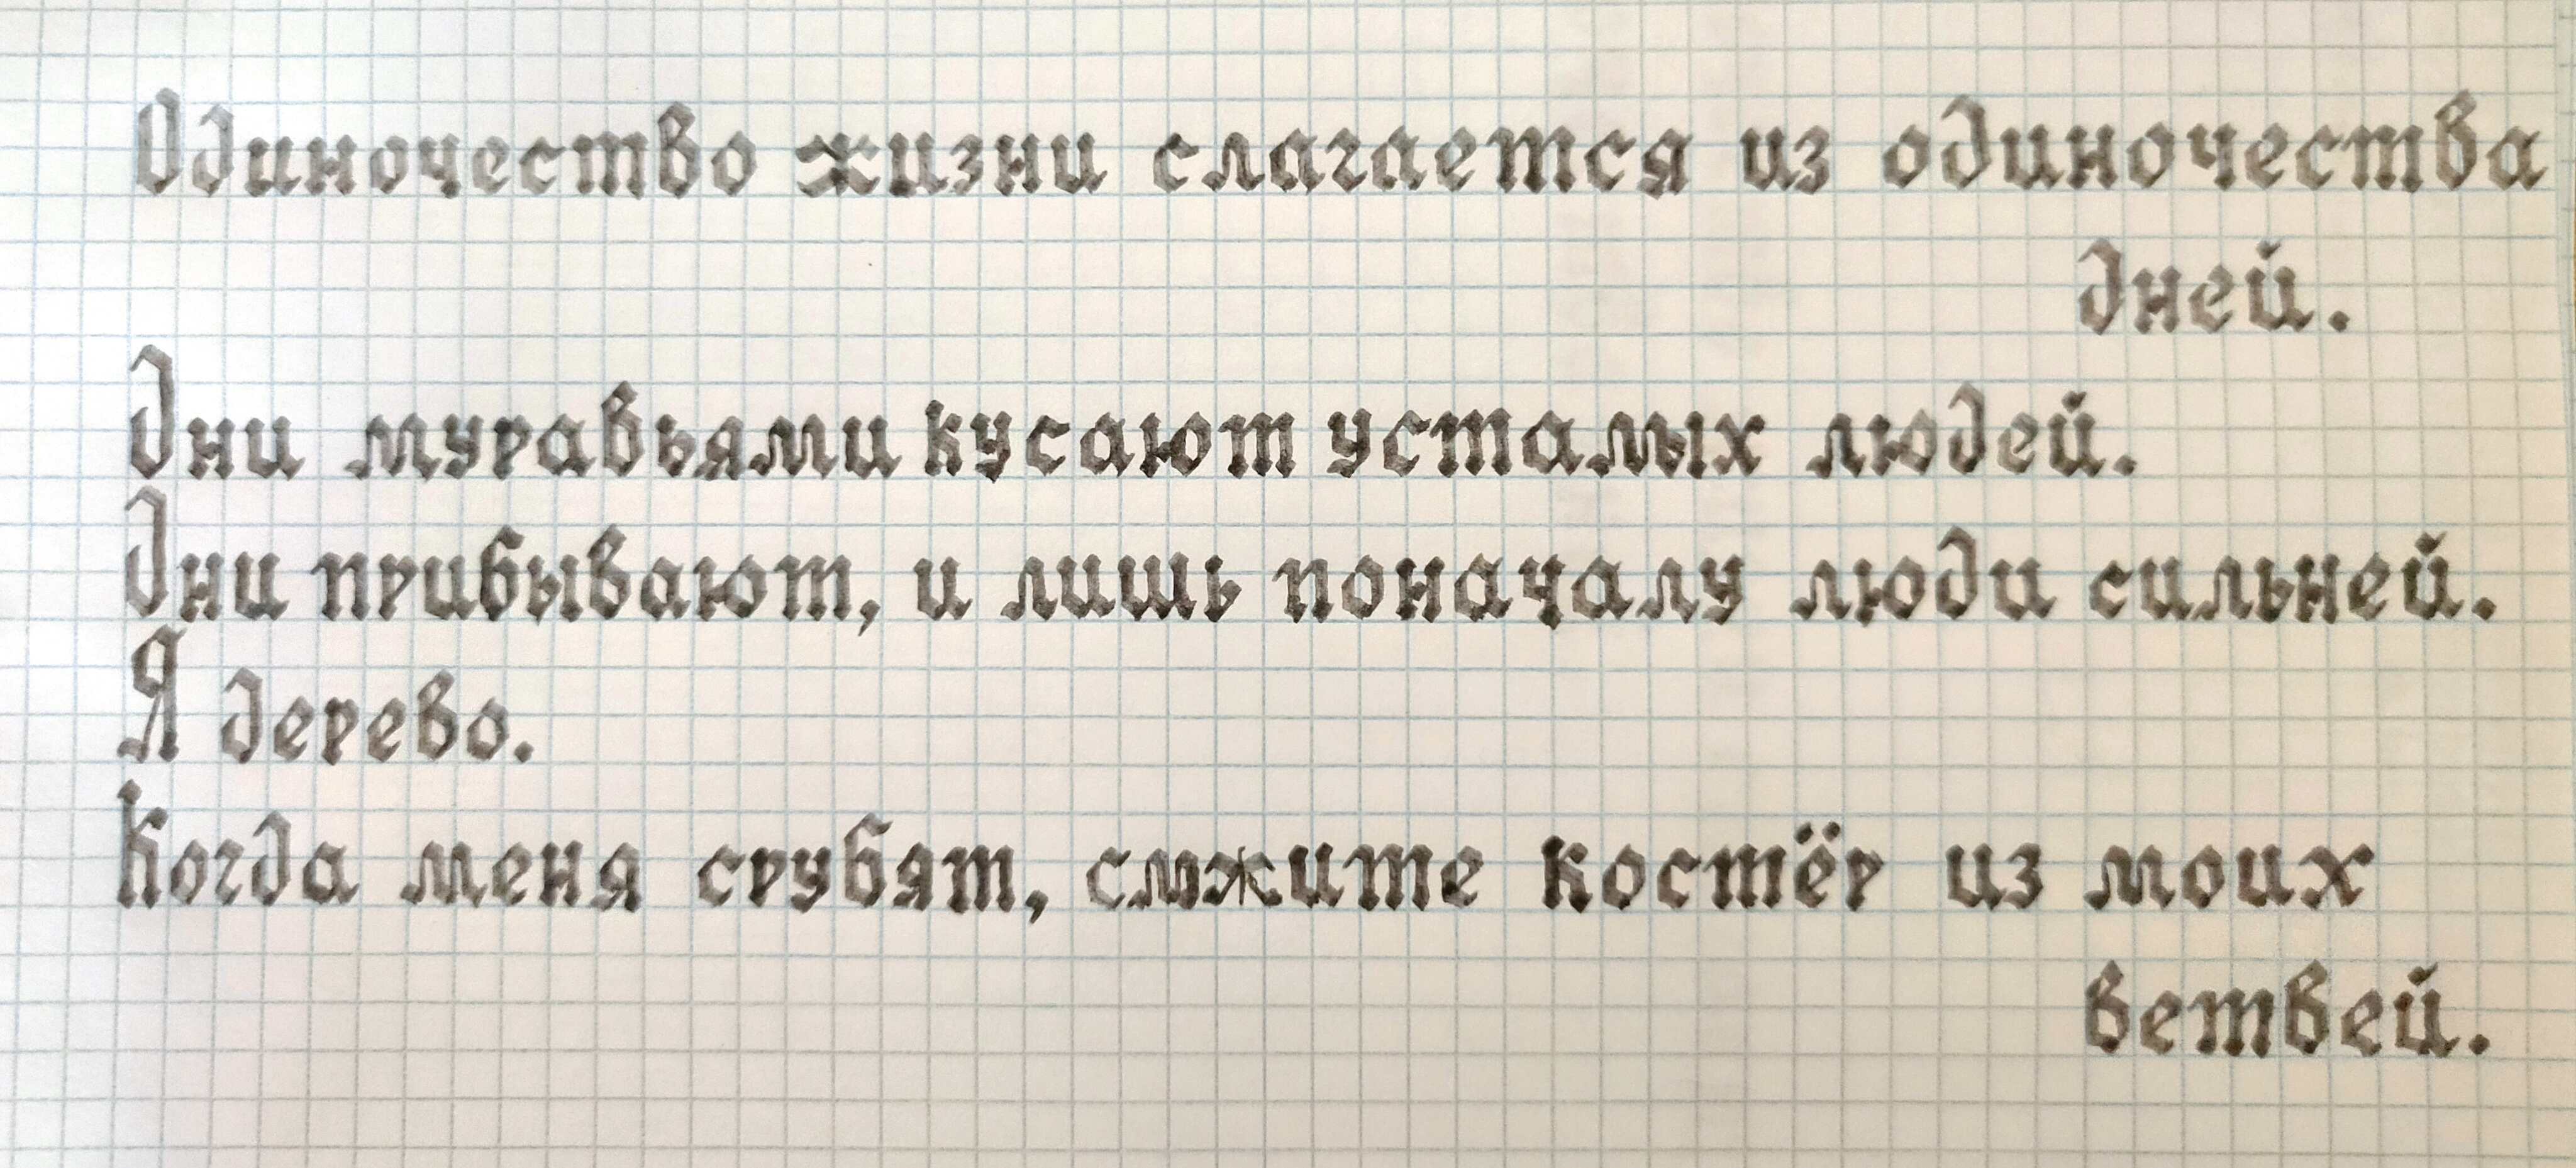 Одиночество жизни слагается из одиночества
дней.
Дни муравьями кусают усталых людей.
Дни прибывают, и лишь поначалу люди сильней.
Я дерево.
Когда меня срубят, смжите костёр из моих
ветвей.